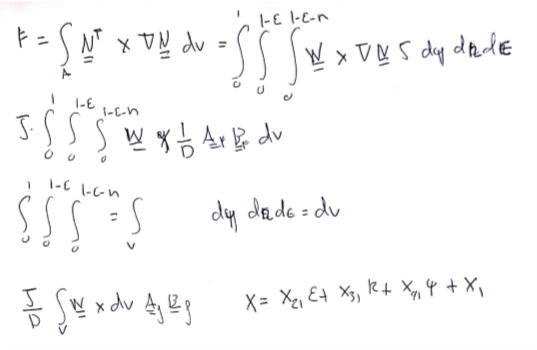 F = ∫_A N^T x ∇N dv = ∫_0^1 ∫_0^{1-ε} ∫_0^{1-ε-n} W x ∇N J dψ dn dε
J · ∫_0^1 ∫_0^{1-ε} ∫_0^{1-ε-n} W x 1/D A_r B_r dv
∫_0^1 ∫_0^{1-ε} ∫_0^{1-ε-n} = ∫_V dψ dn dε = dv
J/D ∫_V W x dv A_j B_j X = X_{21} ε + X_{31} n + X_{41} ψ + X_1